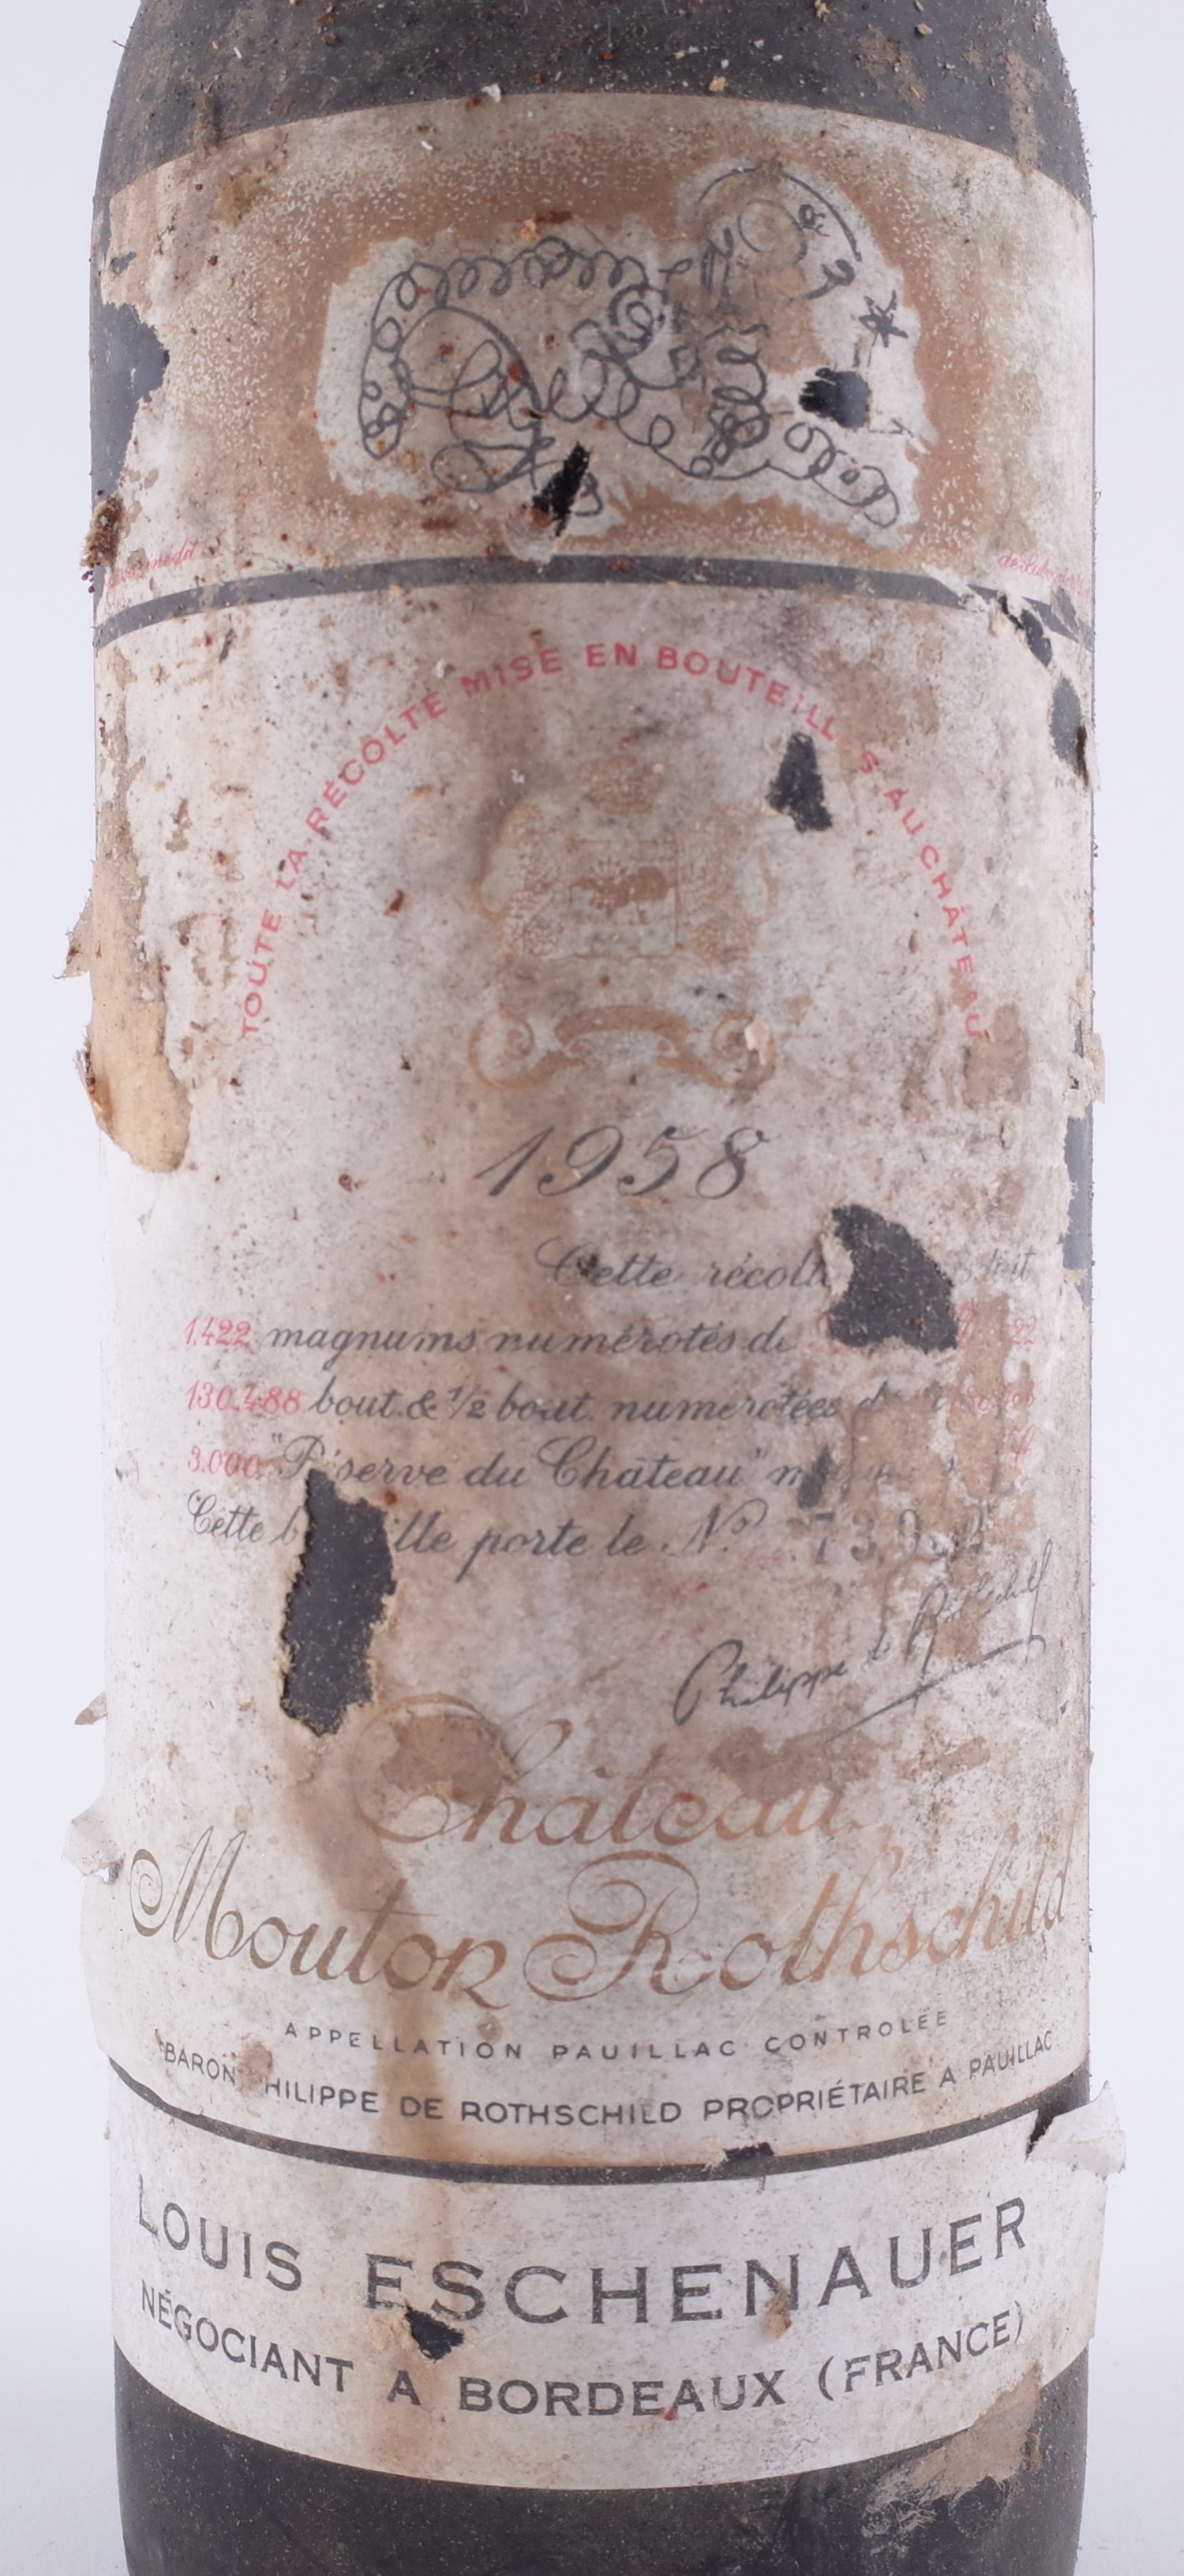 inédit
TOUTE LA RÉCOLTE MISE EN BOUTEILL S AU CHÂTEAU
1958
Cette récolt
1.422 magnums numérotés de 22
130.488 bout. & 1/2 bout. numérotées d
3.000 "R serve du Château" m
Cette b ille porte le No
Philippe de Rothschild
Château
Mouton Rothschild
APPELLATION PAUILLAC CONTROLÉE
BARON HILIPPE DE ROTHSCHILD PROPRIÉTAIRE A PAUILLAC
LOUIS ESCHENAUER
NÉGOCIANT A BORDEAUX (FRANCE)